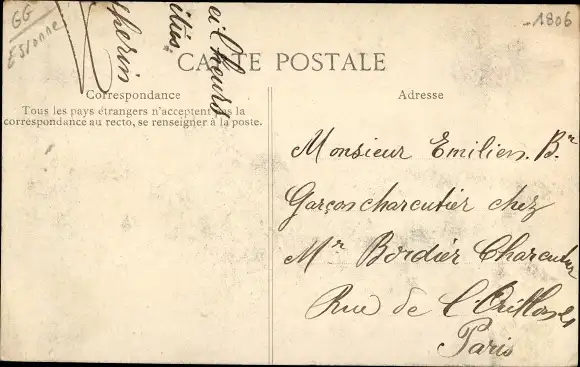 GG
Essonne
1806
CARTE POSTALE
Correspondance
Tous les pays étrangers n'acceptent pas la
correspondance au recto, se renseigner à la poste.
Adresse
Monsieur Emilien. B.
Garçon charcutier chez
Mr Bordier Charcutier
Rue de l'Orillon 21
Paris